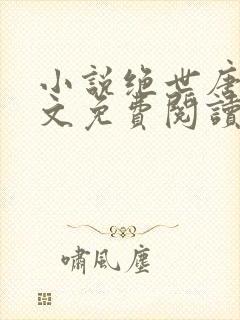 小說绝世唐
文免費閱讀
嘯風塵